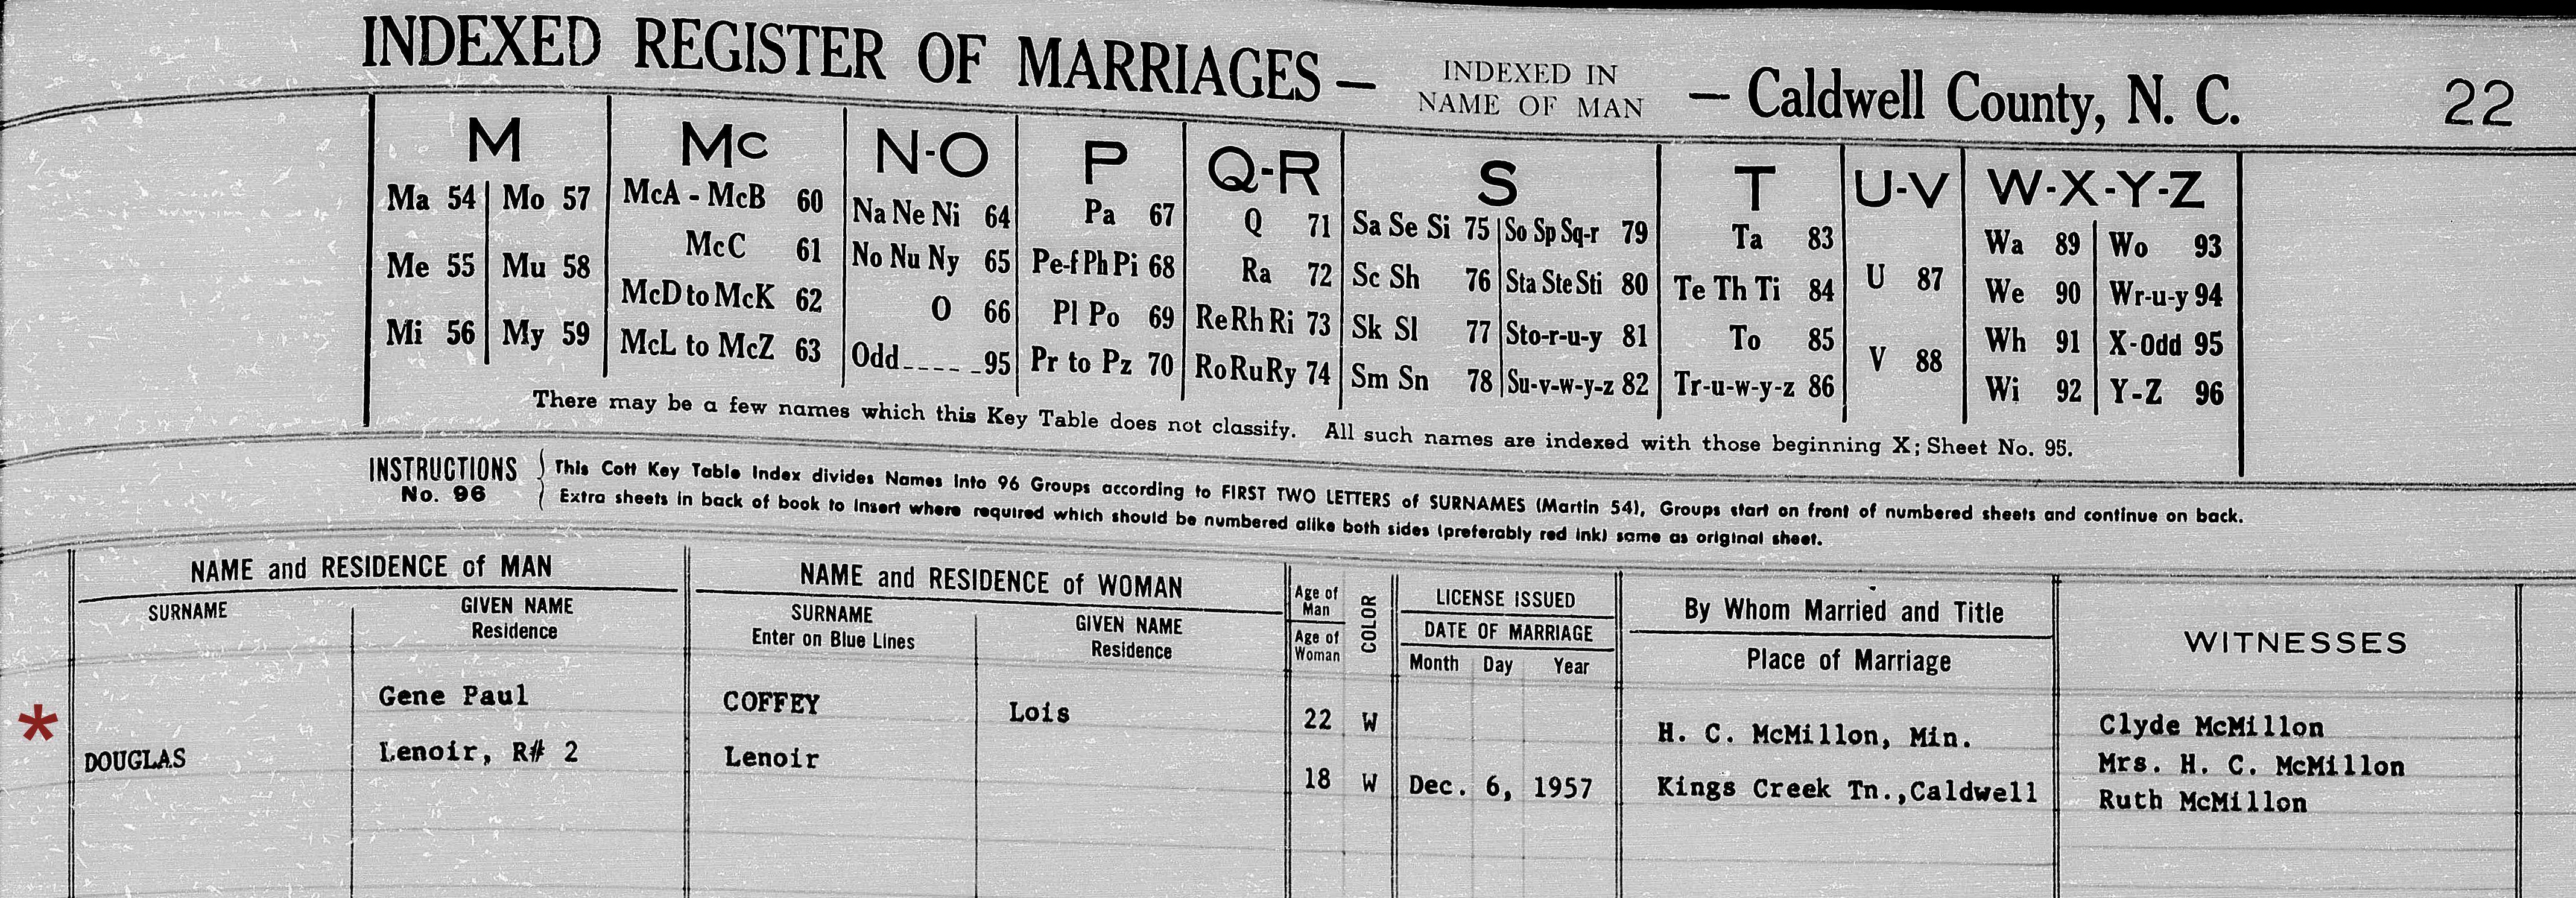 INDEXED REGISTER OF MARRIAGES — INDEXED IN NAME OF MAN — Caldwell County, N. C. 22
M Mc N-O P Q-R S T U-V W-X-Y-Z
Ma 54 Mo 57 McA - McB 60 Na Ne Ni 64 Pa 67 Q 71 Sa Se Si 75 So Sp Sq-r 79 Ta 83 U 87 Wa 89 Wo 93
Me 55 Mu 58 McC 61 No Nu Ny 65 Pe-f Ph Pi 68 Ra 72 Sc Sh 76 Sta Ste Sti 80 Te Th Ti 84 V 88 We 90 Wr-u-y 94
Mi 56 My 59 McD to McK 62 O 66 Pl Po 69 Re Rh Ri 73 Sk Sl 77 Sto-r-u-y 81 To 85 Wh 91 X-Odd 95
McL to McZ 63 Odd_ _ _ _ _95 Pr to Pz 70 Ro Ru Ry 74 Sm Sn 78 Su-v-w-y-z 82 Tr-u-w-y-z 86 Wi 92 Y-Z 96
There may be a few names which this Key Table does not classify. All such names are indexed with those beginning X; Sheet No. 95.
INSTRUCTIONS No. 96
This Cott Key Table Index divides Names into 96 Groups according to FIRST TWO LETTERS of SURNAMES (Martin 54), Groups start on front of numbered sheets and continue on back.
Extra sheets in back of book to insert where required which should be numbered alike both sides (preferably red ink) same as original sheet.
NAME and RESIDENCE of MAN
SURNAME
GIVEN NAME
Residence
NAME and RESIDENCE of WOMAN
SURNAME
Enter on Blue Lines
GIVEN NAME
Residence
Age of Man
Age of Woman
COLOR
LICENSE ISSUED
DATE OF MARRIAGE
Month Day Year
By Whom Married and Title
Place of Marriage
WITNESSES
*
Gene Paul COFFEY Lois 22 W H. C. McMillon, Min. Clyde McMillon
DOUGLAS Lenoir, R# 2 Lenoir 18 W Dec. 6, 1957 Kings Creek Tn.,Caldwell Mrs. H. C. McMillon
Ruth McMillon